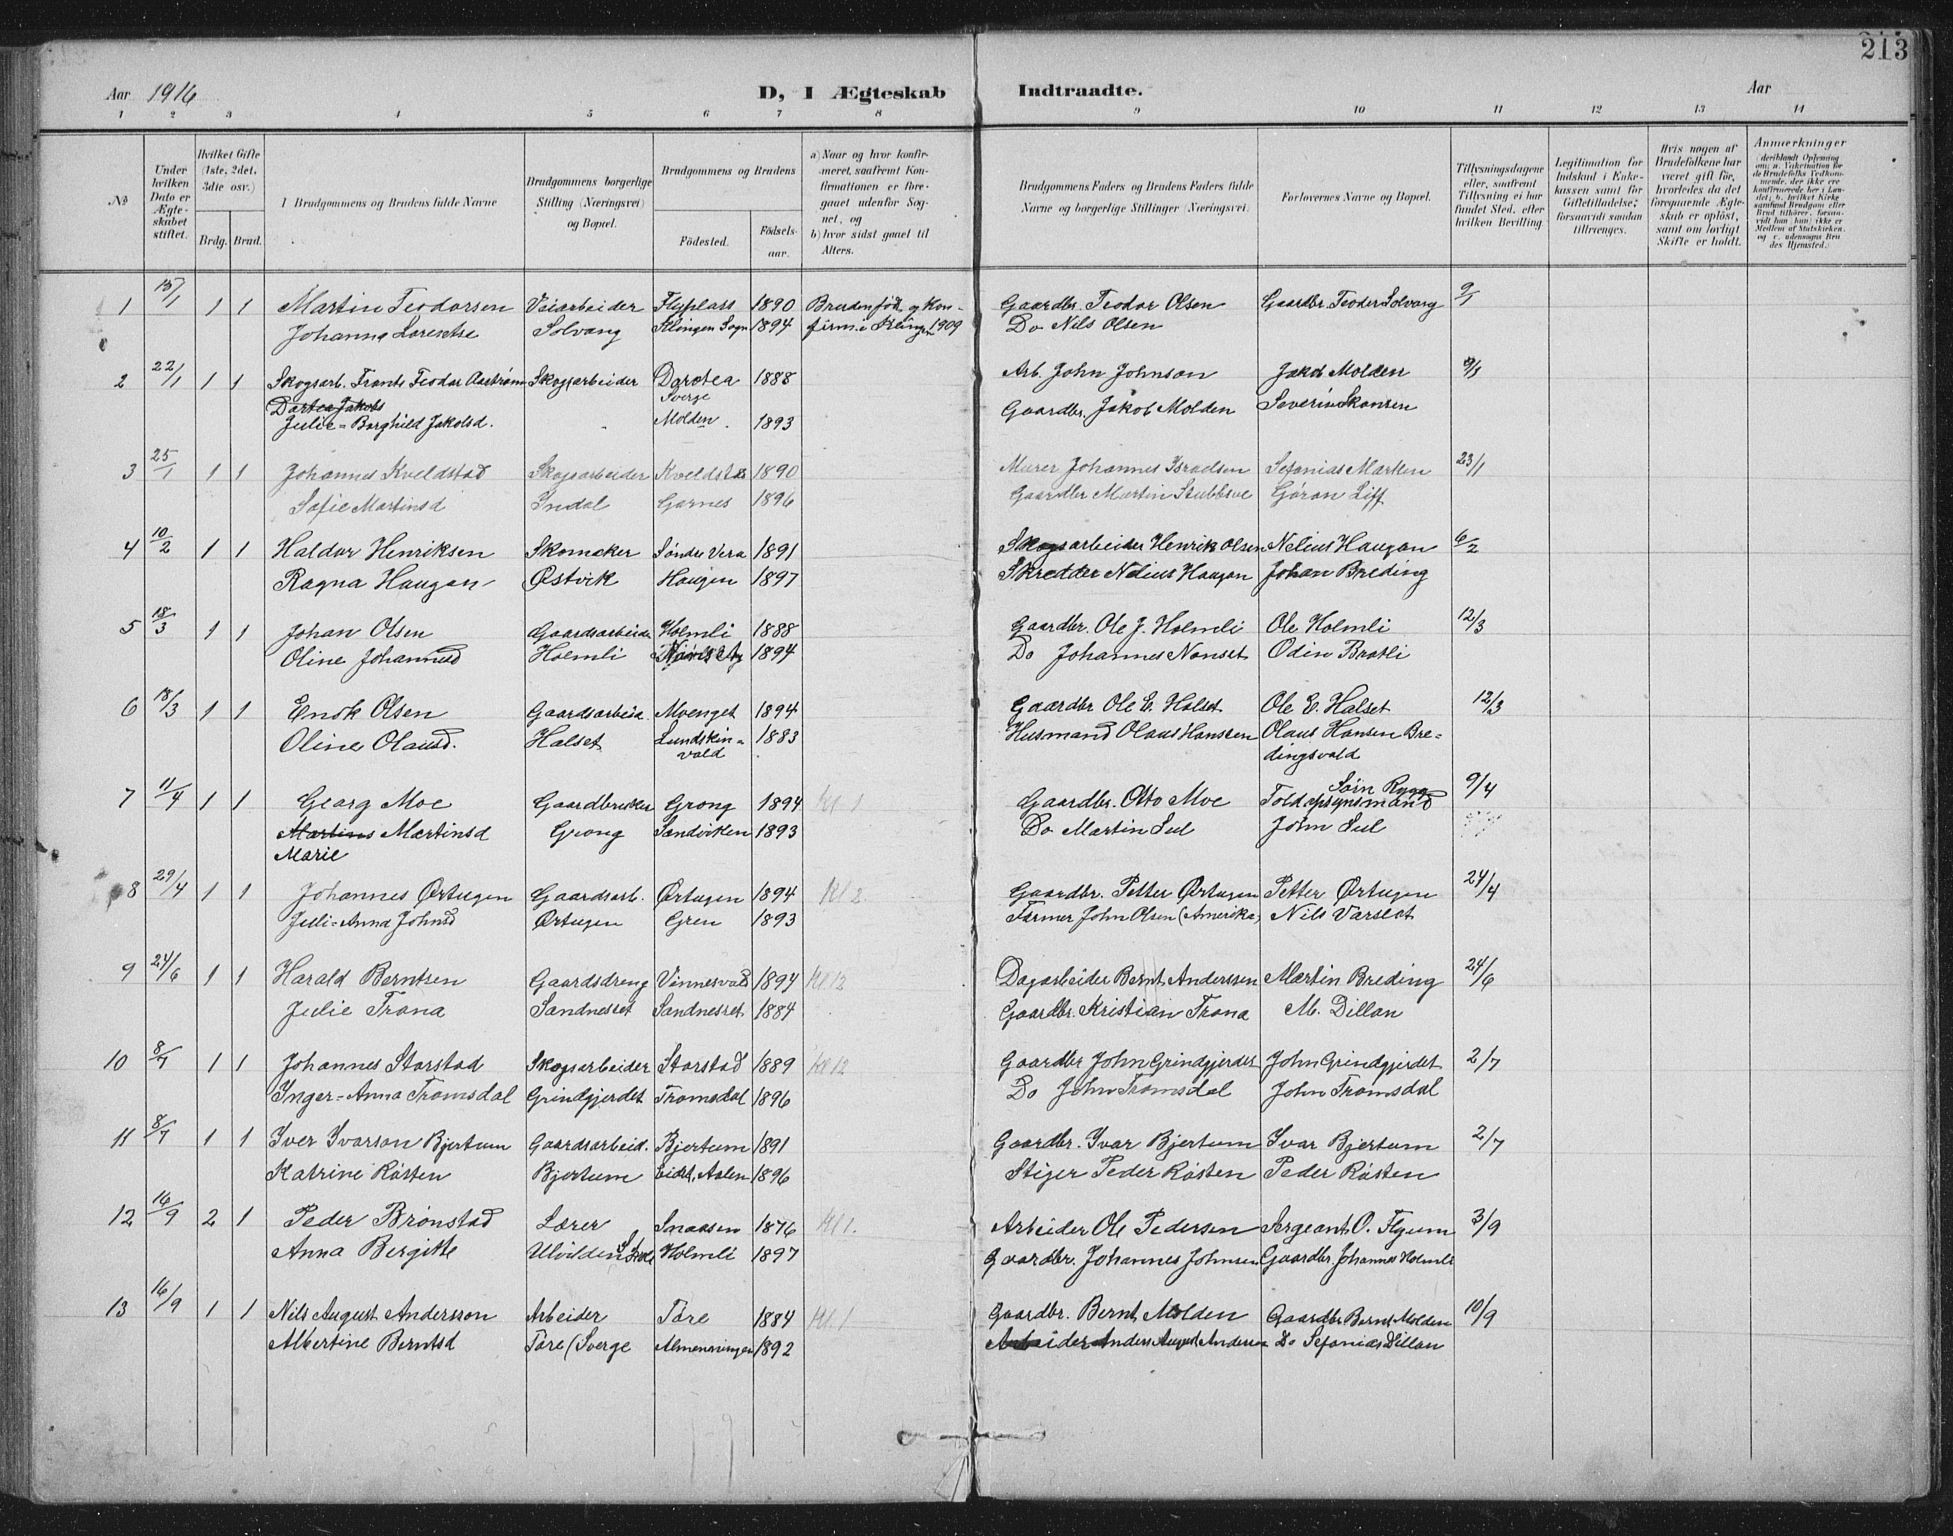 213
Aar 1916 D, I Ægteskab Indtraadte. Aar
1 2 3 4 5 6 7 8 9 10 11 12 13 14
№
Under hvilken Dato er Ægteskabet stiftet.
Hvilket Gifte (1ste, 2det, 3die osv.)
Brdg. Brud.
I Brudgommens og Brudens fulde Navne
Brudgommens borgerlige Stilling (Næringsvei) og Bopæl.
Brudgommens og Brudens
Fødested. Fødselsaar.
a) Naar og hvor konfirmeret, saafremt Konfirmationen er foregaaet udenfor Sognet, og
b) hvor sidst gaaet til Alters.
Brudgommens Faders og Brudens Faders fulde Navne og borgerlige Stillinger (Næringsvei.
Forlovernes Navne og Bopæl.
Tillysningsdagene eller, saafremt Tillysning ei har fundet Sted, efter hvilken Bevilling
Legitimation for Indskud i Enkekassen samt for Giftetilladelse; forsaavidt saadan tiltrænges.
Hvis nogen af Brudefolkene har været gift før, hvorledes da det foregaaende Ægteskab er opløst, samt om lovligt Skifte er holdt.
Anmærkninger
1 15/1 1 1 Martin Teodorsen Veiarbeider Flyplass 1890 Bruden født og kon- Gaardbr. Teodor Olsen Gaardbr. Teodor Solvang 9/1
Johanna Solvang Sogn 1894 firm. i 1909 Do Nils Olsen
2 22/1 1 1 Skogsarb. Frants Teodor Skogsarbeider Dorotea 1888 Arb. John Johnson Jakob Molden
Sverge
Julie-Borghild Jakobsd. Molden 1893 Gaardbr. Jakob Molden Severin Skansen
3 25/1 1 1 Johannes Kveldstad Skogsarbeider 1890 Murer Johannes Sefanias Marken 23/1
Sofie Martinsd Indal Garnes 1896 Gaardbr Martin Stubbsve Göran Liff
4 10/2 1 1 Haldor Henriksen Skomaker Søndre Vera 1891 Skogsarbeider Henrik Olsen Nelius Haugan 6/2
Ragna Haugan Østvik Haugen 1897 Skredder Nelius Haugan Johan Breding
5 18/3 1 1 Johan Olsen Gaardsarbeide Holmli 1888 Gaardbr. Ole J. Holmli Ole Holmli 12/3
Oline Johannesd Holmli 1894 Do Johannes Nonset Odin Bratli
6 18/3 1 1 Enok Olsen Gaardsarbeid. Moenget 1894 Gaardbr Ole E. Halset Ole E. Halset 12/3
Oline Olausd. Halset Lundskin- 1883 Husmand Olaus Hanssen Olaus Hansen Bre-
vald dingsvald
7 11/4 1 1 Georg Moe Gaardbruker Grong 1894 Kl 1 Gaardbr. Otto Moe Toldopsynsmand Sørn Rygg 9/4
Martinsd Grong Sandviken 1893 Do Martin Sul John Sul
Marie
8 29/4 1 1 Johannes Ørtugen Gaardsarb. Ørtugen 1894 Kl 2. Gaardbr. Petter Ørtugen Petter Ørtugen 24/4
Juli-Anna Johnsd Ørtugen Gren 1893 Farmer John Olsen (Amerika) Nils Varslot
9 24/6 1 1 Harald Berntsen Gaardsdreng Vinnesvald 1894 Kl 12 Dagarbeider Bernt Anderssen Martin Breding 24/6
Julie Trona Sandnesset Sandnesset 1884 Gaardbr. Kristian Trona M. Dillan
10 8/7 1 1 Johannes Storstad Skogsarbeider Storstad 1889 Kl 12 Gaardbr John Grindgjerdet John Grindgjerdet 2/7
Inger-Anna Tromsdal Grindgjerdet Tromsdal 1896 Do John Tromsdal John Tromsdal
11 8/7 1 1 Iver Ivarson Bjertum Gaardsarbeid. Bjertum 1891 Gaardbr. Ivar Bjertum Ivar Bjertum 2/7
Katrine Røsten Bjertum Eidet, Aalen 1896 Stiger Peder Røsten Peder Røsten
12 16/9 2 1 Peder Brønstad Lærer Snaasen 1876 Kl 1. Arbeider Ole Pedersen Sergeant O. Flyum 3/9
Anna Bergitte Ulvilden Holmli 1897 Gaardbr. Johannes Johnsen Gaardbr. Johannes Holmli
13 16/9 1 1 Nils August Andersson Arbeider Tøre 1884 Kl. 1 Gaardbr. Bernt Molden Gaardbr Bernt Molden 10/9
Albertine Berntsd Tøre (Sverge Almenningen 1892 Arbeider Anders August Anderson Do Sefanias Dillan